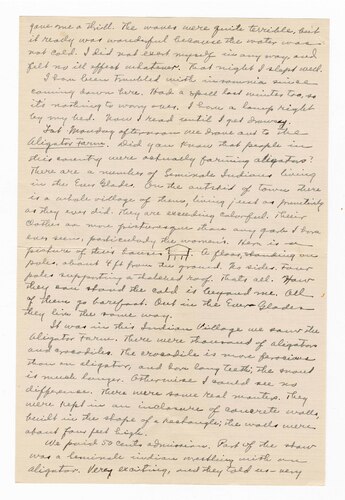 gave me a thrill. The waves were quite terrible, but
it really was wonderful because the water was
not cold. I did not exert myself in any way, and
felt no ill effect whatever. That night I slept well.
I have been troubled with insomnia since
coming down here. Had a spell last winter too, so
it's nothing to worry over. I have a lamp right
by my bed. Now I read until I get drowsy.
Last Monday afternoon we drove out to the
Aligator Farm. Did you know that people in
this country were actually farming aligators?
There are a number of Seminole Indians living
in the Ever Glades. On the outskirt of town there
is a whole village of them, living just as primitively
as they ever did. They are exceeding colorful. Their
clothes are more picturesque than any gods I have
ever seen, particularly the women's. Here is a
picture of their houses. A floor, standing on
poles, about 4 ft from the ground. No sides. Four
poles supporting a thatched roof, that's all. How
they can stand the cold is beyond me. All
of them go barefoot. Out in the Ever Glades
they live the same way.
It was in this Indian Village we saw the
Aligator Farm. There were thousand of aligators
and crocodiles. The crocodile is more ferocious
than an aligator, and has long teeth; the snout
is much longer. Otherwise I could see no
difference. There were some real monsters. They
were kept in an inclosure of concrete walls,
built in the shape of a rectangle; the walls were
about four feet high.
We paid 50 cents admission. Part of the show
was a Seminole indian wrestling with an
aligator. Very exciting, and they told us - very